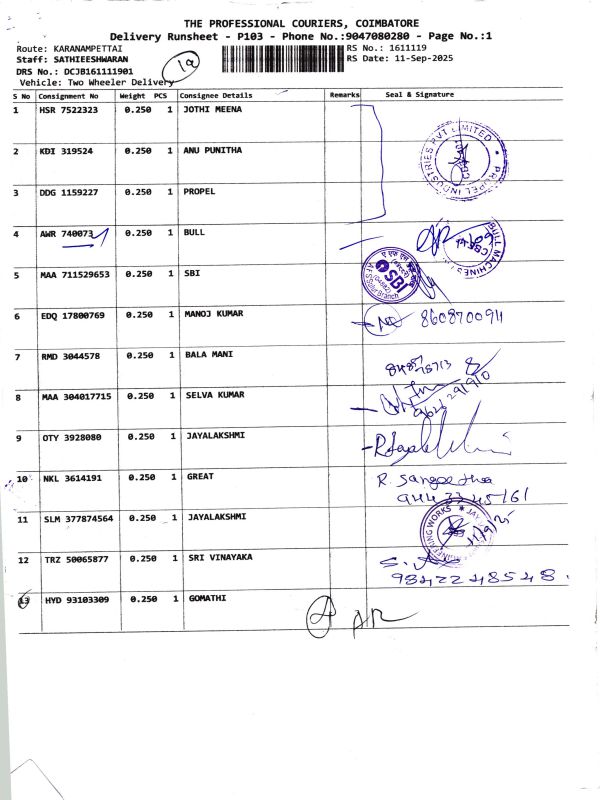 THE PROFESSIONAL COURIERS, COIMBATORE
Delivery Runsheet - P103 - Phone No.:9047080280 - Page No.:1
Route: KARANAMPETTAI RS No.: 1611119
Staff: SATHIEESHWARAN RS Date: 11-Sep-2025
DRS No.: DCJB161111901
Vehicle: Two Wheeler Delivery
S No Consignment No Weight PCS Consignee Details Remarks Seal & Signature
1 HSR 7522323 0.250 1 JOTHI MEENA
2 KDI 319524 0.250 1 ANU PUNITHA
PROPEL INDUSTRIES PVT LIMITED
3 DDG 1159227 0.250 1 PROPEL
4 AWR 740073 0.250 1 BULL
BULL MACHINES
5 MAA 711529653 0.250 1 SBI
SBI
Branch
6 EDQ 17800769 0.250 1 MANOJ KUMAR
8608700911
7 RMD 3044578 0.250 1 BALA MANI
8 MAA 304017715 0.250 1 SELVA KUMAR
9 OTY 3928080 0.250 1 JAYALAKSHMI
10 NKL 3614191 0.250 1 GREAT R. Sangeetha
9443345161
11 SLM 377874564 0.250 1 JAYALAKSHMI
11/9/25
12 TRZ 50065877 0.250 1 SRI VINAYAKA
9842248548.
13 HYD 93103309 0.250 1 GOMATHI